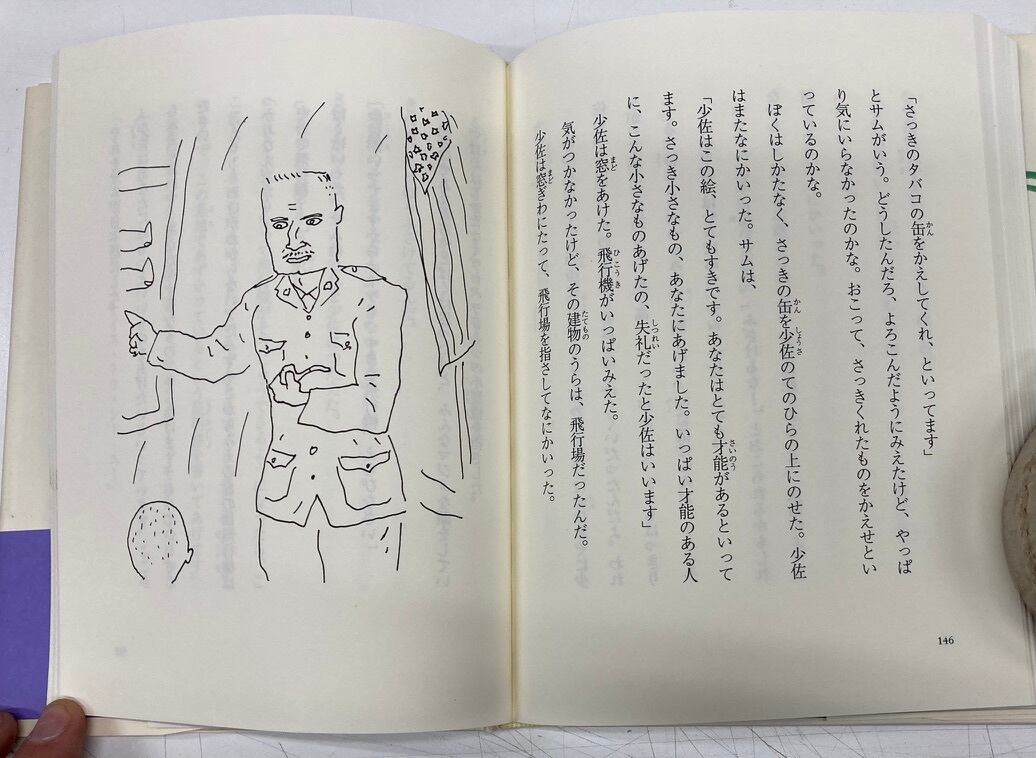 「さっきのタバコの缶をかえしてくれ、といってます」
とサムがいう。どうしたんだろ、よろこんだようにみえたけど、やっぱ
り気にいらなかったのかな。おこって、さっきくれたものをかえせとい
っているのかな。
ぼくはしかたなく、さっきの缶を少佐のてのひらの上にのせた。少佐
はまたなにかいった。サムは、
「少佐はこの絵、とてもすきです。あなたはとても才能があるといって
ます。さっき小さなもの、あなたにあげました。いっぱい才能のある人
に、こんな小さなものあげたの、失礼だったと少佐はいいます」
少佐は窓をあけた。飛行機がいっぱいみえた。
気がつかなかったけど、その建物のうらは、飛行場だったんだ。
少佐は窓ぎわにたって、飛行場を指さしてなにかいった。
146